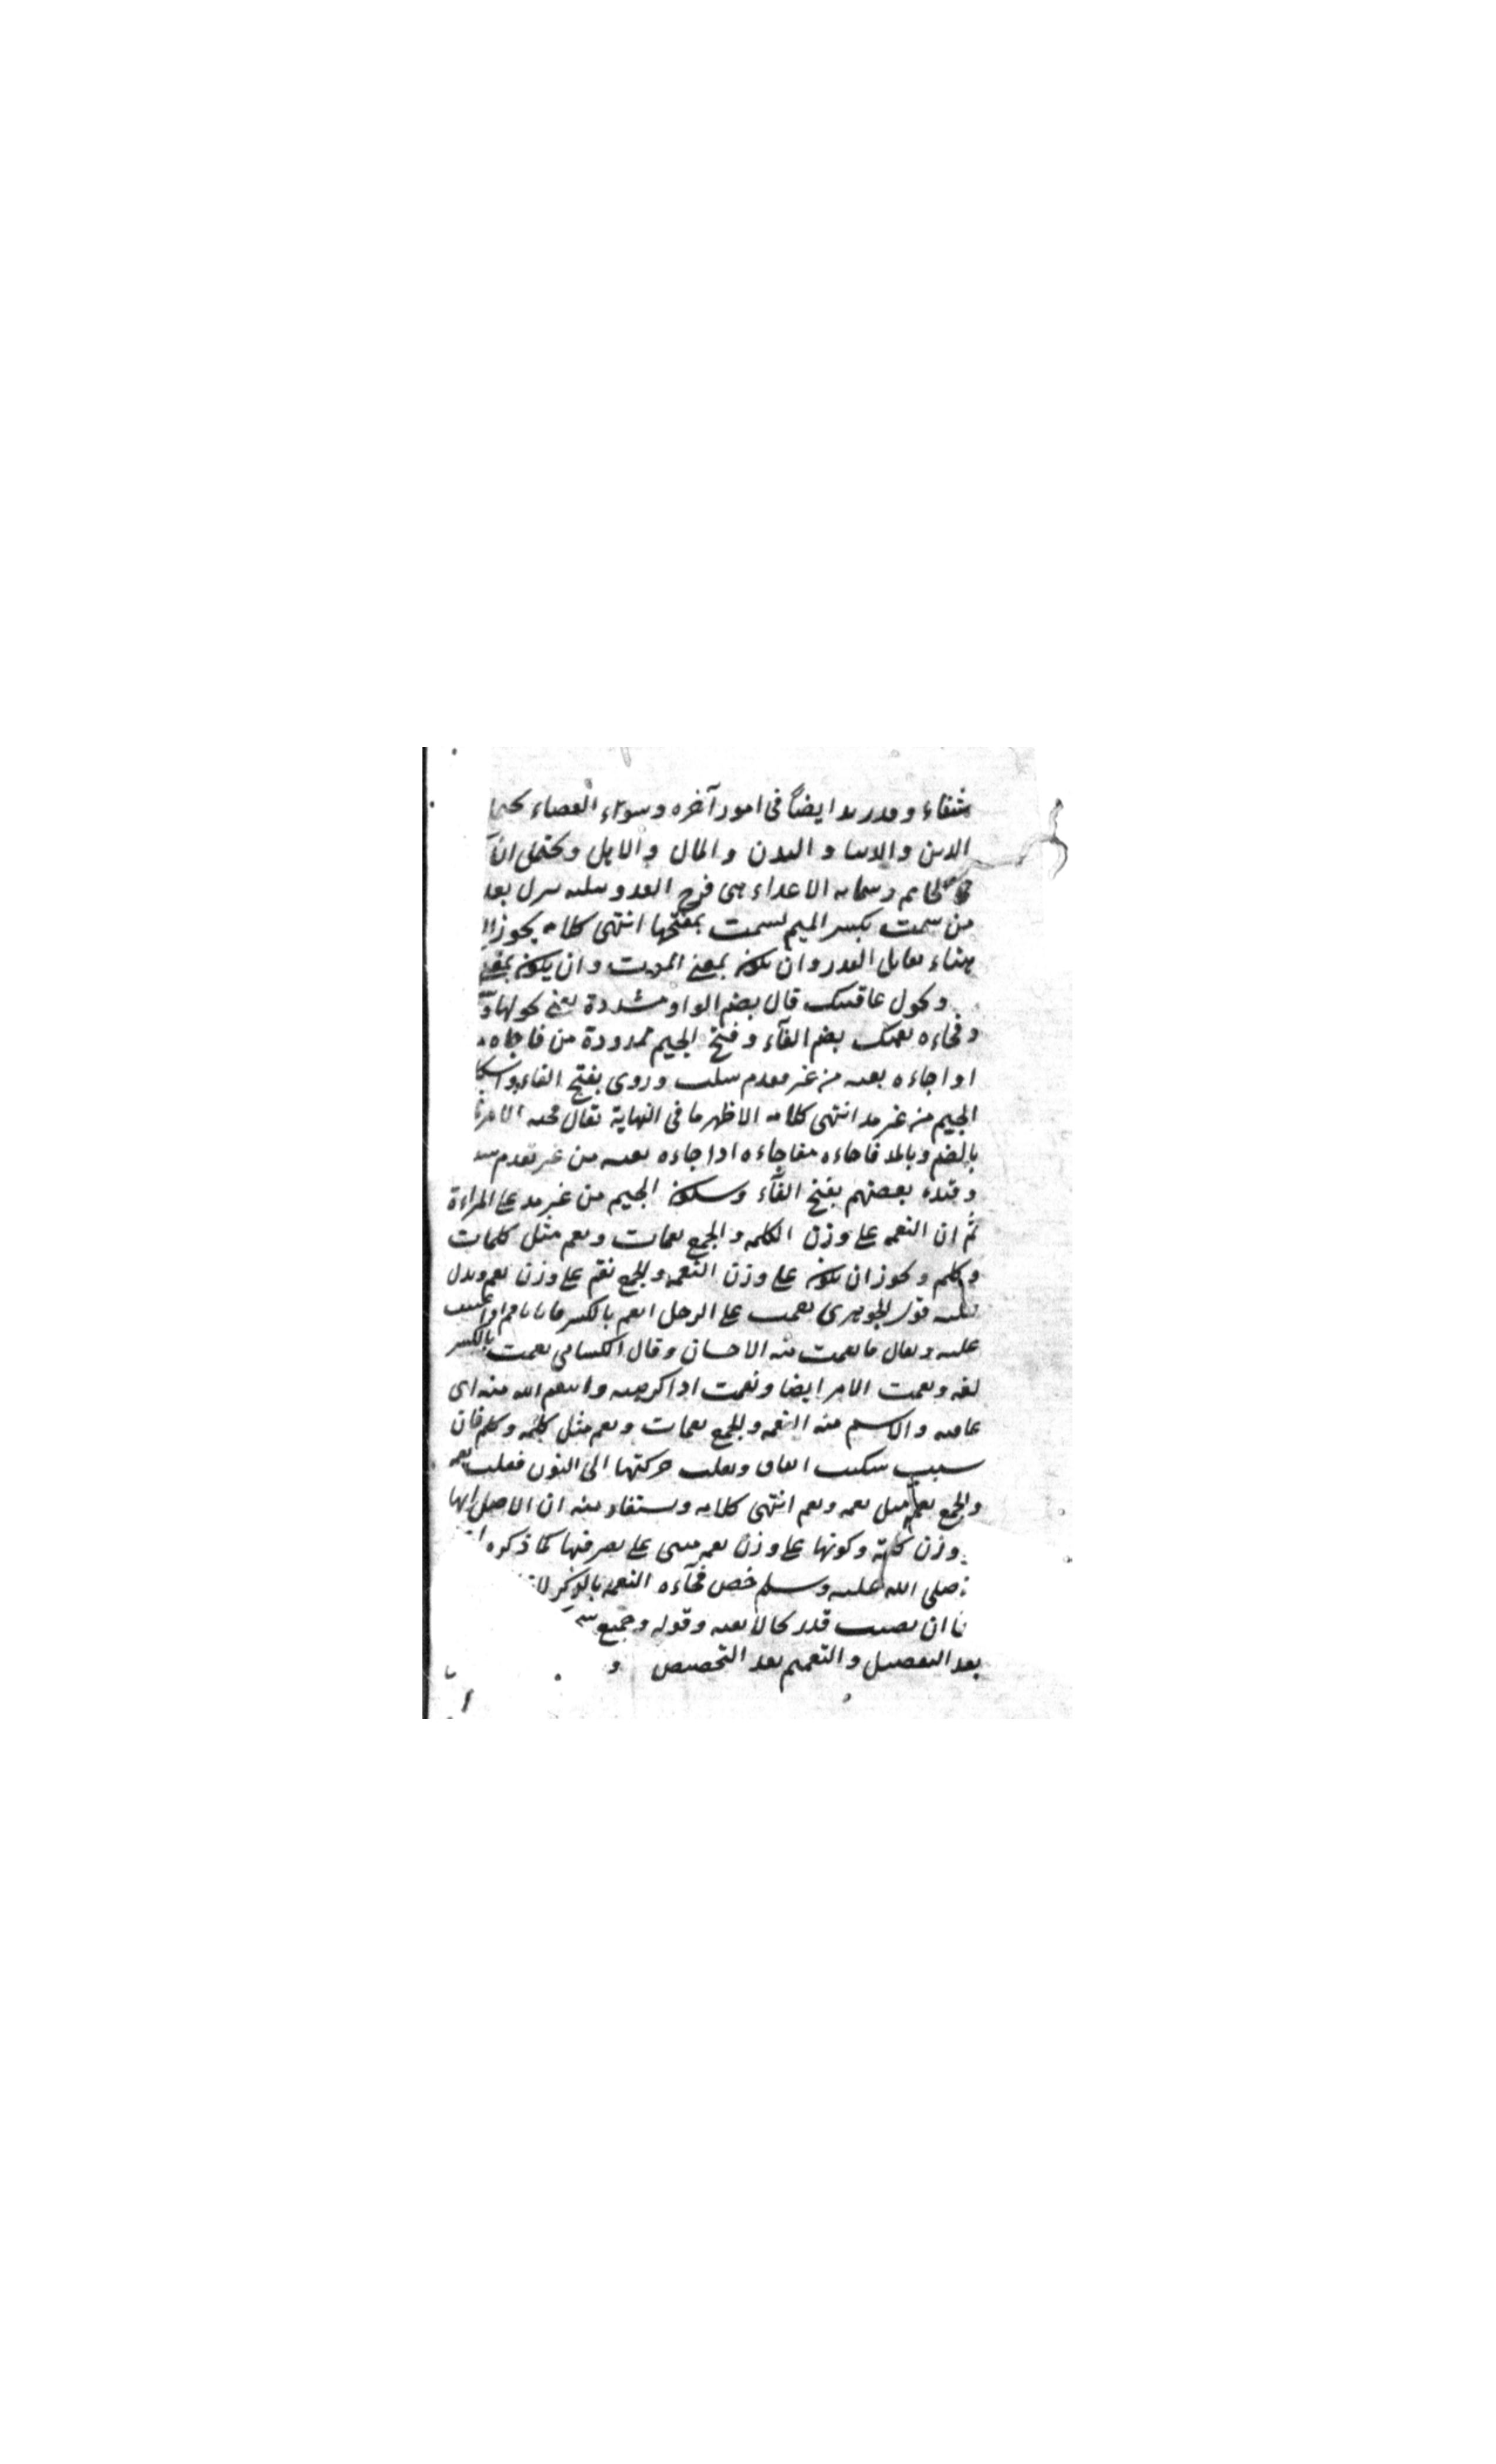 شقاء وقد يريد ايضاً فى امور آخره وسوء القضاء
الدين والدنيا و البدن و المال و الاهل ويحتمل ان
وشماتة الاعداء هى فرح العدو ببلية تنزل بعد
من شمت بكسر الميم يشمت بفتحها انتهى كلامه يجوز
هناء يقابل القدر وان يكون بمعنى وان يكون بمعنى
وتحول عاقبتك قال بضم الواو مشددة يعنى تحولها
وفجاءه نقمتك بضم الفآء وفتح الجيم ممدودة من فاجاه
اذا جاءه بغتة من غير مقدم سبب وروى بفتح الفاء واسكا
الجيم من غير مد انتهى كلامه الاظهر ما فى النهاية يقال فجئه الامر
بالضم وبالمد فاجاءه مفاجاءه اذا جاءه بغتة من غير تقدم سبب
وقيده بعضهم بفتح الفآء وسكون الجيم من غير مد على المراءة
ثم ان النقمة على وزن الكلمه والجمع نقمات ونقم مثل كلمات
وكلم ويجوز ان يكون على وزن النعمه والجمع نقم على وزن نعم ويدل
عليه قول الجوهرى نقمت على الرجل انقم بالكسر فانا ناقم اذا عتبت
عليه ويقال ما نقمت منه الا الاحسان وقال الكسائى نقمت بالكسر
لغه ونقمت الامر ايضا ونقمت اذا كرهته وانتقم الله منه اى
عاقبه والاسم منه النقمه والجمع نقمات ونقم مثل كلمه وكلم فان
سيب سكنت القاف ونقلت حركتها الى النون فقلت نقمه
والجمع نقم مثل نعمه ونعم انتهى كلامه ويستفاد منه ان الاصل انها
وزن كلمة وكونها على وزن نعمه مبنى على تصرفها كما ذكره
صلى الله عليه وسلم خص فجآءه النقمه بالذكر لانـ
ان تصيب قدر كالا بعته وقوله وجميع
بعد التفصيل والتعميم بعد التخصيص و